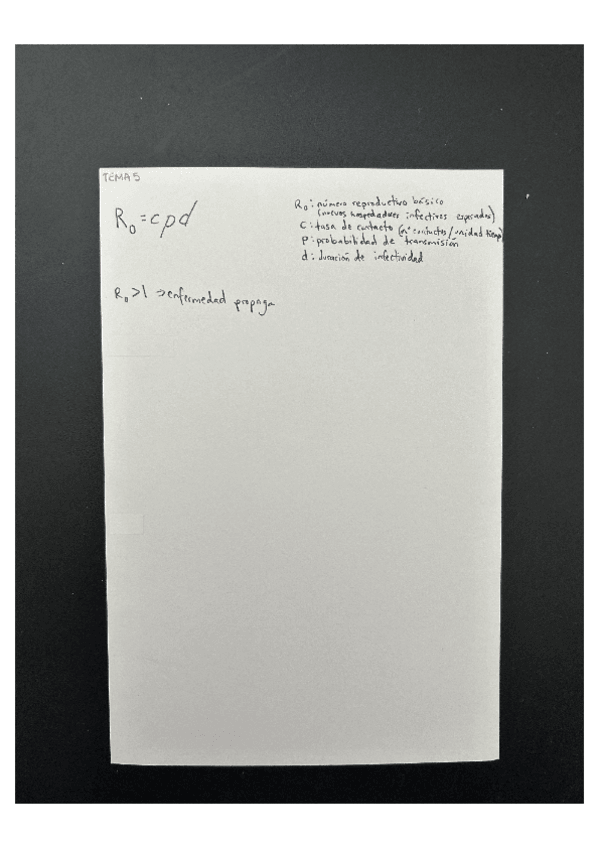 TEMA 5
R₀ = cpd
R₀: número reproductivo básico
(nuevos hospedadores infectivos esperados)
C: tasa de contacto (nº contactos/unidad tiempo)
P: probabilidad de transmisión
d: duración de infectividad
R₀ > 1 → enfermedad propaga